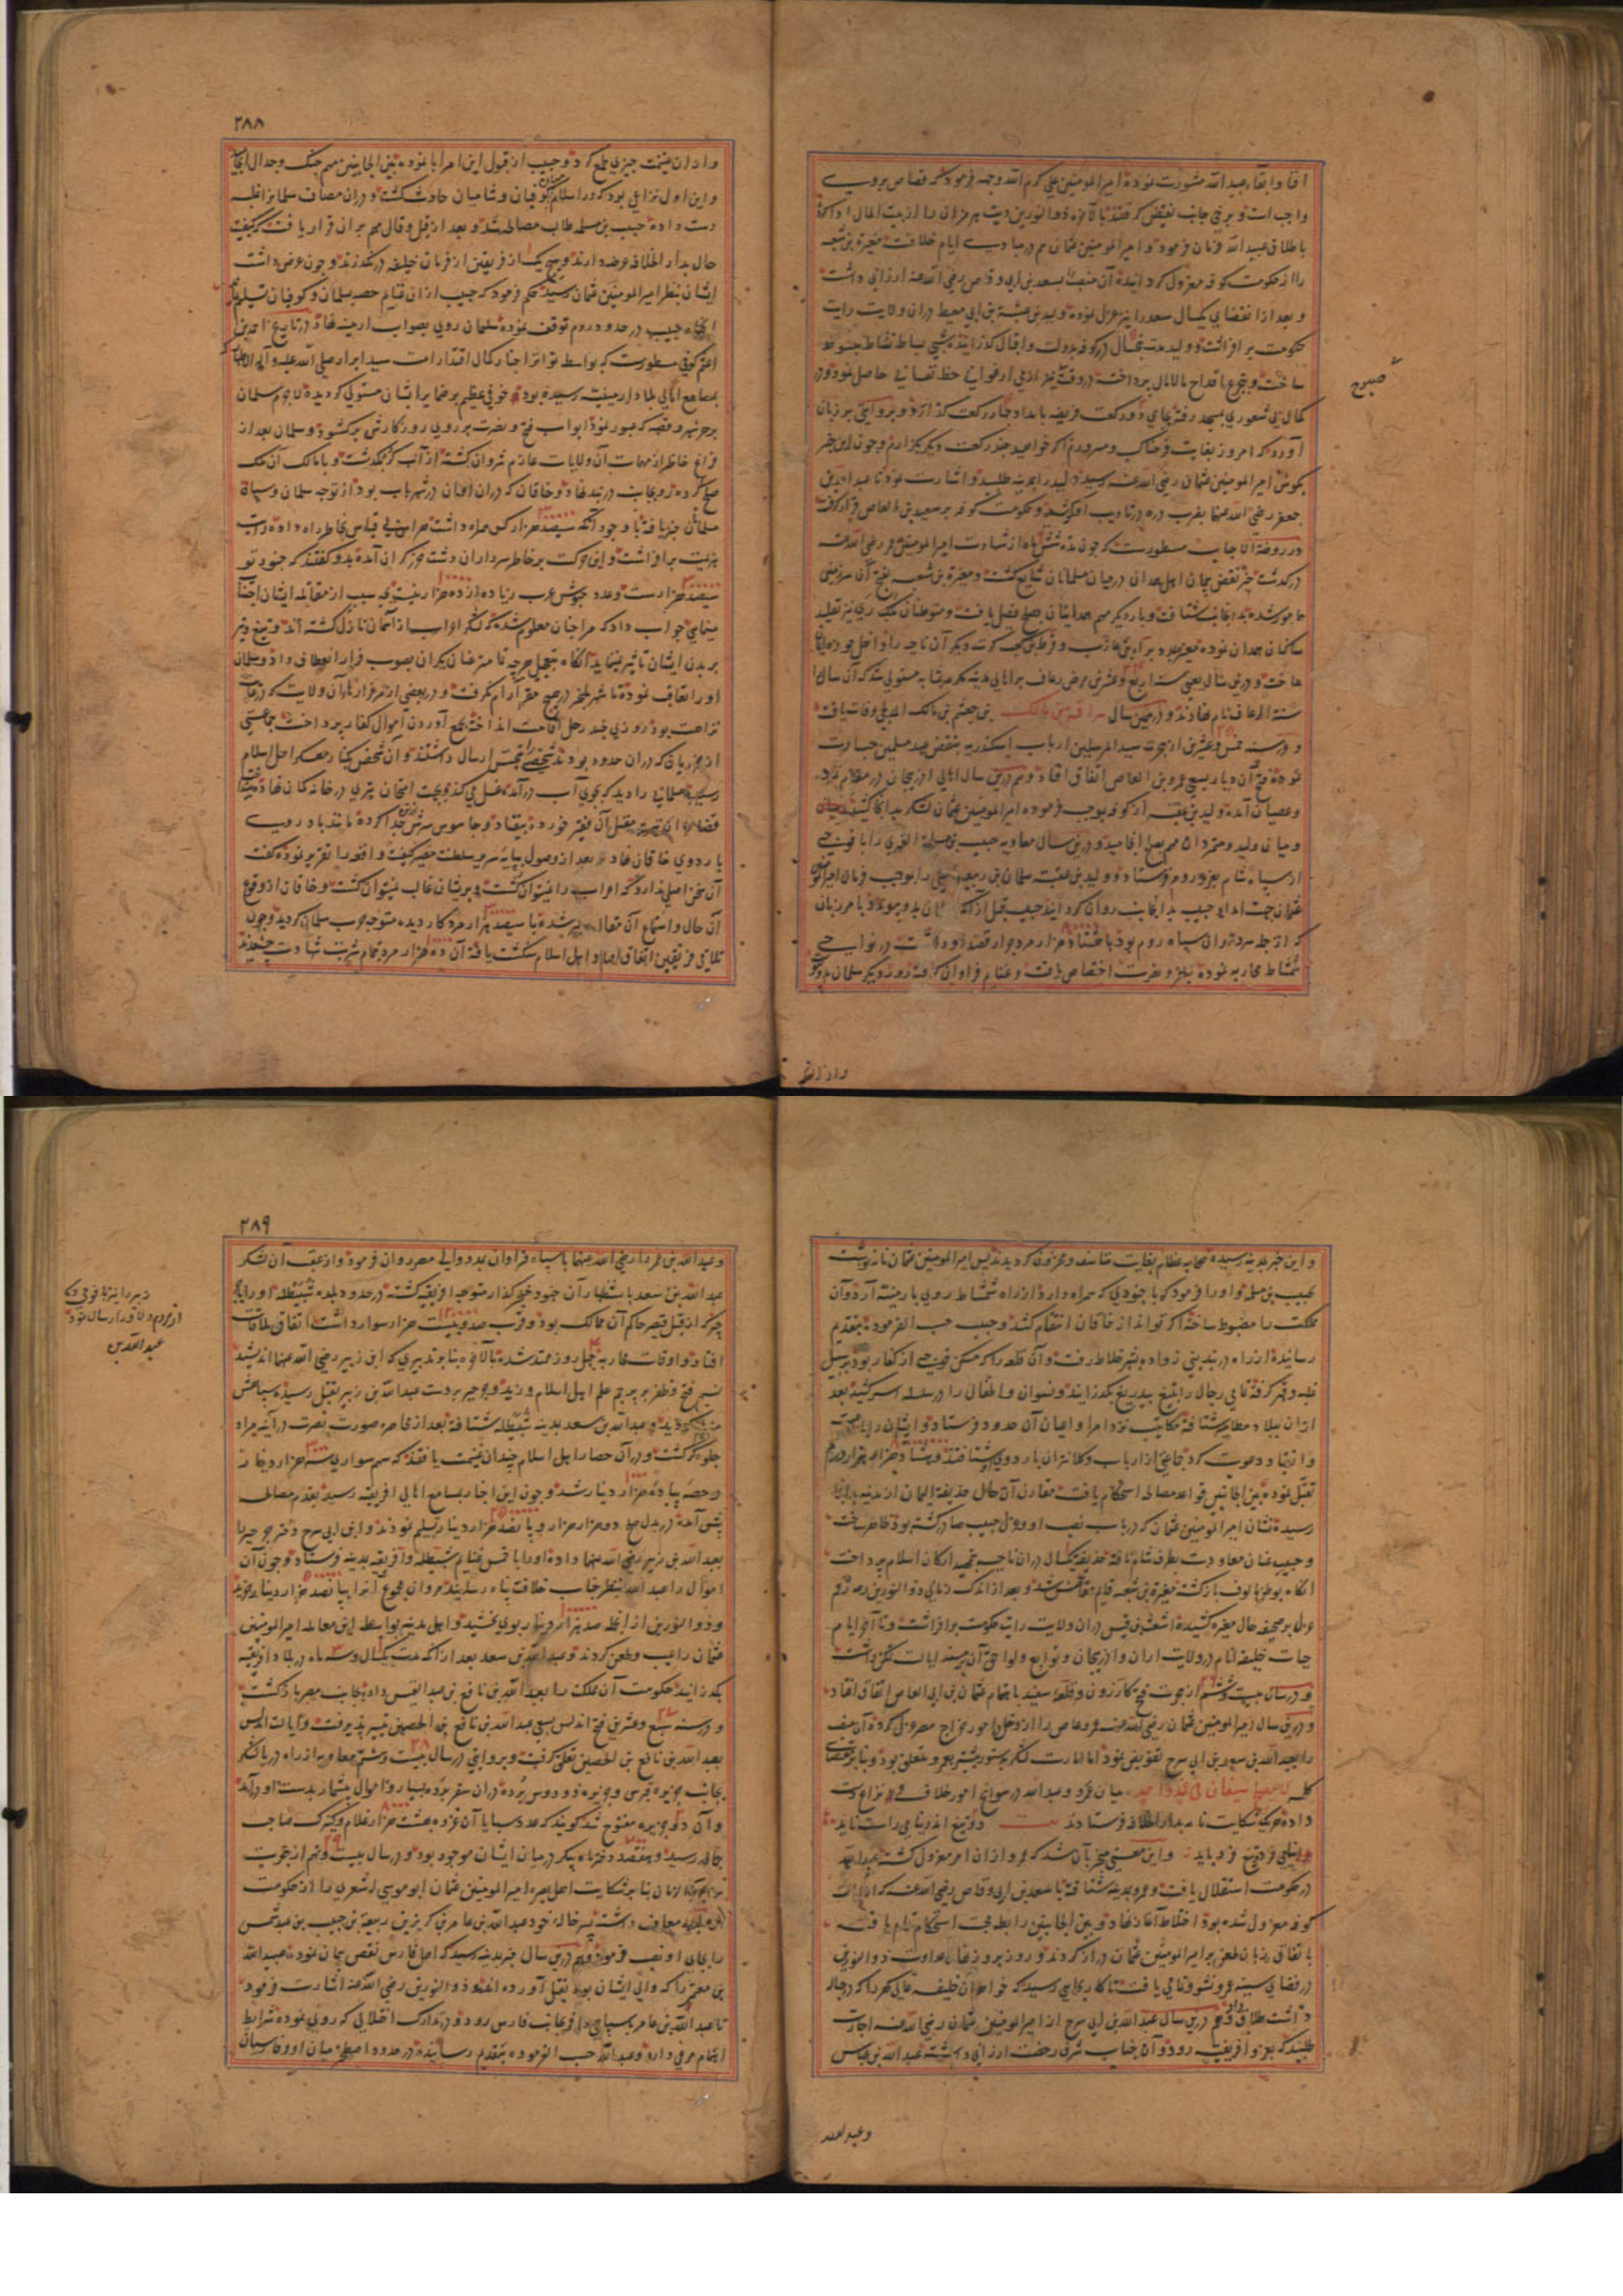 افنا و ابقاء عبد الله مشورت نموده امیر المومنین علی کرم الله وجهه فرمود که قصاص بر وی
واجب است و برخی جانب نقیض گرفتند بالآخره ذو النورین دیت هرمزان را از بیت المال ادا کرده
باطلاق عبید الله فرمان فرمود و امیر المومنین عثمان هم در مبادی ایام خلافت مغیرة بن شعبه
را از حکومت کوفه معزول گردانیده آن منصب را بسعد بن ابی وقاص رضی الله عنه ارزانی داشت
و بعد از انقضای یکسال سعد را نیز عزل نموده ولید بن عقبة بن ابی معیط در ان ولایت رایت
حکومت بر افراشت و ولید مدت پنجسال در کوفه بدولت و اقبال گذرانیده شبی بساط نشاط مبسوط
ساخت و بتجرع اقداح مالامال پرداخته
کمال بی شعوری بمسجد رفته بجای دو رکعت فریضه بامداد چهار رکعت گذارد و بروایتی بر زبان
آورد که امروز بغایت فرحناک و مسرورم اگر خواهید چند رکعت دیگر بگزارم و چون این خبر
بگوش امیر المومنین عثمان رضی الله عنه رسید ولید را بمدینه طلبید و اشارت نمود تا عبد الله بن
جعفر رضی الله عنهما بضرب دره در تادیب او کوشید و حکومت کوفه بر سعید بن العاص قرار گرفت
در روضة الاحباب مسطورست که چون مدت شش ماه از شهادت امیر المومنین عمر رضی الله عنه
در گذشت خبر نقض پیمان اهل همدان در میان مسلمانان شایع گشت و مغیرة بن شعبه بفتح آن سرزمین
مامور شده بدانجانب شتافت و بار دیگر مهم همدانیان بصلح فیصل یافت و متوطنان ملک ری نیز تقلید
ساکنان همدان نموده
ساخت و درین سال یعنی سنه اربع و عشرین مرض رعاف بر اهالی مدینه مکرمه بمثابه مستولی شد که آن سال را
سنة الرعاف نام نهادند و در همین سال سراقة بن مالک بن جعشم بن مالک المدلجی وفات یافت
و در سنه خمس و عشرین از هجرت سید المرسلین ارباب اسکندریه بنقض عهد مسلمین جسارت
نموده فتح آن دیار بسعی عمرو بن العاص اتفاق افتاد و هم درین سال اهالی اذربیجان در مقام تمرد
و عصیان آمده ولید بن عقبه از کوفه بموجب فرموده امیر المومنین عثمان لشکر بدانجا کشید
و میان ولید و متمردان مهم بصلح انجامید و درین سال معاویه حبیب بن مسلمة الفهری را با فوجی
از سپاه شام بغزو روم فرستاد و ولید بن عقبه سلمان بن ربیعه باهلی را بموجب فرمان امیر المومنین
عثمان جهت امداد حبیب بدانجانب روان گردانید حبیب قبل از آنکه سلمان بدو پیوندد با مرزبان
که از جمله سرداران سپاه روم بود با هشتاد هزار مرد جرار قصد او داشت در نواحی
شمشاط محاربه نموده بظفر و نصرت اختصاص یافت و غنایم فراوان گرفت روز دیگر سلمان بدو پیوست
صبوح
وازان
۲۸۸
و از ان غنیمت چیزی طمع کرد و حبیب از قبول این امر ابا نموده بین الجانبین مهم بجنگ و جدال انجامید
و این اول نزاعی بود که در اسلام میان کوفیان و شامیان حادث گشت و در ان مصاف سلمانرا غلبه
دست داده حبیب بن مسلمه طالب مصالحه شد و بعد از قیل و قال مهم بران قرار یافت که کیفیت
حال بدار الخلافه عرضه دارند و هیچ یک از فریقین از فرمان خلیفه در نگذرند و چون عرض داشت
ایشان بنظر امیر المومنین عثمان رسید حکم فرمود که حبیب از ان غنایم حصه سلمان و کوفیان تسلیم نماید
انگاه حبیب در حدود روم توقف نموده سلمان روی بصوب ارمینه نهاد در تاریخ احمد بن
اعثم کوفی مسطورست که بواسطه تواتر اخبار کمال اقتدار امت سید ابرار صلی الله علیه و آله الاطهار
بمسامع اهالی بلاد ارمینیه رسیده بود خوفی عظیم بر ضمایر ایشان مستولی گردیده لاجرم سلمان
بر هر شهر و قصبه که عبور نمود ابواب فتح و نصرت بر روی روزگارش برگشود و سلمان بعد از
فراغ خاطر از مهمات آن ولایات عازم شروان گشته از آب کر بگذشت و با مالک آن ملک
صلح کرده رو بجانب دربند نهاد و خاقان که در ان اوان در شهر باب بود از توجه سلمان و سپاه
مسلمان خبر یافته با وجود آنکه سیصد هزار کس همراه داشت هراس بی قیاس بخاطر راه داده رایت
هزیمت بر افراشت و این حرکت بر خاطر سرداران دشت خزر گران آمده بدو گفتند که جنود تو
سیصد هزارست و عدد جیوش عرب زیاده از ده هزار نیست بچه سبب از مقاتله ایشان اجتناب
مینمایی جواب داد که مرا چنان معلوم شده که لشکر اعراب از آسمان نازل گشته اند و تیغ و تیر
بر بدن ایشان تاثیر نمینماید انگاه بتعجیل هر چه تمامتر عنان یکران بصوب فرار انعطاف داد و سلمان
او را تعاقب نموده تا شهر بلنجر در هیچ مقر آرام نگرفت و در بعضی از مرغزارهای آن ولایت که در غایت
نزاهت بود روزی چند رحل اقامت انداخته بجمع آوردن اموال کفار پرداخت جماعتی
از خزریان که دران حدود بودند شخصی را بتجسس ارسال داشتند و آن شخص بکنار معسکر اهل اسلام
رسیده مسلمانی را دید که بجوی آب در آمده غسل می کند بجهت امتحان تیری در خانه کمان نهاد
قضا را آن تیر بر مقتل آن فقیر خورده بیفتاد و جاسوس سرش جدا کرده مانند باد روی
باردوی خاقان نهاد بعد از وصول بپایه سریر سلطنت مصیر کیفیت واقعه را تقریر نموده گفت
آن سخن اصلی ندارد که اعراب را نمیتوان کشت و بریشان غالب نمیتوان گشت و خاقان از وقوع
آن حال و استماع آن مقال دلیر شده با سیصد هزار مرد کار دیده متوجه حرب سلمان گردید و چون
تلاقی فریقین اتفاق افتاد اهل اسلام شکست یافته آن ده هزار مرد تمام شربت شهادت چشیدند
و این خبر بمدینه رسیده صحابه عظام بغایت متاسف و محزون گردیدند پس امیر المومنین عثمان نامه نوشت
بحبیب بن مسلمه و او را فرمود که با جنودی که همراه دارد از راه شمشاط روی بارمینیه آرد و آن
مملکت را مضبوط ساخته اگر تواند از خاقان انتقام کشد و حبیب حسب الفرموده بتقدیم
رسانیده از راه دربند
غلبه و قهر گرفته تمامی رجال را بتیغ بیدریغ بگذرانید و نسوان و اطفال را در سلسله اسر کشید بعد
ازان ببلاد مطامیر شتافته مکاتیب نزد امرا و اعیان آن حدود فرستاد و ایشان را باطاعت
و انقیاد دعوت کرد جماعتی از ارباب و کلانتران باردوی شتافتند و هشتاد هزار درم
تقبل نموده بین الجانبین قواعد مصالحه استحکام یافت مقارن آن حال حذیفة الیمان از مدینه بدانجا
رسیده نشان امیر المومنین عثمان که در باب نصب او و عزل حبیب صادر گشته بود ظاهر ساخت
و حبیب عنان معاودت بطرف شام تافته حذیفه یکسال دران ناحیه بتمهید ارکان اسلام پرداخت
انگاه بوطن مالوف بازگشته مغیرة بن شعبه قایم مقامش شد و بعد از اندک زمانی ذو النورین رضه رقم
عزل بر صحیفه حال مغیره کشیده اشعث بن قیس دران ولایت رایت حکومت بر افراشت و تا آخر ایام
حیات خلیفه انام در ولایت اران و اذربیجان و توابع و لواحق آن بر مسند ایالت تمکن داشت
و در سال بیست و ششم از هجرت فتح کازرون و قلعه سفید باهتمام عثمان بن ابی العاص اتفاق افتاد
و درین سال امیر المومنین عثمان رضی الله عنه عمرو عاص را از دخل در امور خراج مصر عزل کرده آن منصب
را بعبد الله بن سعد بن ابی سرح تفویض نمود اما امارت لشکر بدستور پیشتر بعمرو متعلق بود و بنا بر مقتضای
کلمه لا یجتمع سیفان فی غمد واحد میان عمرو و عبد الله در سوانح امور خلاف و نزاع دست
داده هر یک شکایت نامه بدار الخلافه فرستادند بیت دو تیغ اندر نیامی راست ناید
نیامی در دو تیغ و این معنی منجر بآن شد که عمرو ازان امر معزول گشته عبد الله
در حکومت استقلال یافت و عمرو بمدینه شتافته با سعد بن ابی وقاص رضی الله عنه که از ایالت
کوفه معزول شده بود اختلاط آغاز نهاد و بین الجانبین رابطه محبت استحکام تمام یافته
باتفاق زبان طعن بر امیر المومنین عثمان دراز کردند و روز بروز نهال عداوت ذو النورین
در فضای سینه عمرو نشو و نمایی یافت تا کار بجایی رسید که خواهر آن خلیفه عالی گهر را که در حباله
داشت طلاق داد و هم درین سال عبد الله بن ابی سرح از امیر المومنین عثمان رضی الله عنه اجازت
طلبید که بغزو افریقیه رود و آن جناب شرف رخصت ارزانی داشته عبد الله بن عباس
وعبد الله
۲۸۹
و عبد الله بن عمر را رضی الله عنهما با سپاه فراوان بمدد والی مصر روان فرمود و از عقب آن لشکر
عبد الله بن سعد باستظهار آن جنود خنجر گذار متوجه افریقیه گشته در حدود بلده سبیطله او را با
جرجیر که از قبل قیصر حاکم آن ممالک بود و قرب صد و بیست هزار سوار داشت اتفاق ملاقات
افتاد و اوقات محاربه بچهل روز ممتد شده بالآخره بنا بر تدبیری که ابن زبیر رضی الله عنهما اندیشید
نسیم فتح و ظفر بر پرچم علم اهل اسلام وزید و جرجیر بر دست عبد الله بن زبیر بقتل رسیده سپاهش
منهزم گردید و عبد الله بن سعد بمدینه سبیطله شتافته بعد از محاصره صورت نصرت در آینه مراد
جلوه گر گشت و دران حصار اهل اسلام چندان غنیمت یافتند که سهم سواری سه هزار دینار
و حصه پیاده هزار دینار شد و چون این اخبار بمسامع اهالی افریقیه رسید بقدم مصالحه
پیش آمده در بدل صلح دو هزار هزار و پانصد هزار دینار تسلیم نمودند و ابن ابی سرح دختر جرجیر را
بعبد الله بن زبیر رضی الله عنهما داده او را با خمس غنایم سبیطله و افریقیه بمدینه فرستاد و چون آن
اموال را عبد الله بنظر جناب خلافت پناه رسانید مروان مجموع آنرا بپانصد هزار دینار بخرید
و ذو النورین از انجمله صد هزار دینار بوی بخشید و اهل مدینه بواسطه این معامله امیر المومنین
عثمان را عیب و طعن کردند و عبد الله بن سعد بعد از انکه مدت یکسال و سه ماه در بلاد افریقیه
بگذرانید حکومت آن مملکت را بعبد الله بن نافع بن عبد القیس داده بجانب مصر بازگشت
و در سنه سبع و عشرین فتح اندلس بسعی عبد الله بن نافع بن الحصین تیسیر پذیرفت و ایالت اندلس
بعبد الله بن نافع بن الحصین تعلق گرفت و بروایتی در سال بیست و هشتم معاویه از راه دریا لشکر
بجانب جزیره قبرس و جزیره رودس برده دران سفر برده بسیار و اموال بیشمار بدست او در آمد
و آن دو جزیره مفتوح شد گویند که عدد سبایای آن غزوه بهشت هزار غلام و کنیزک صاحب
جمال رسید و هفتصد دختر ماه پیکر در میان ایشان موجود بود و در سال بیست و نهم از هجرت
بنا بر شکایت اهل بصره امیر المومنین عثمان ابو موسی اشعری را از حکومت
معاف داشته پسر خاله خود عبد الله بن عامر بن کریز بن ربیعة بن حبیب بن عبد شمس
را بجای او نصب فرمود و هم درین سال خبر بمدینه رسید که اهل فارس نقض پیمان نموده عبید الله
بن معمر را که والی ایشان بود بقتل آورده اند و ذو النورین رضی الله عنه اشارت فرمود
تا عبد الله بن عامر با سپاهی وافر بجانب فارس رود و در تدارک اختلالی که روی نموده شرایط
اهتمام مرعی دارد و عبد الله حسب الفرموده بتقدیم رسانیده در حدود اصطخر میان او و فارسیان
عبد الله بن